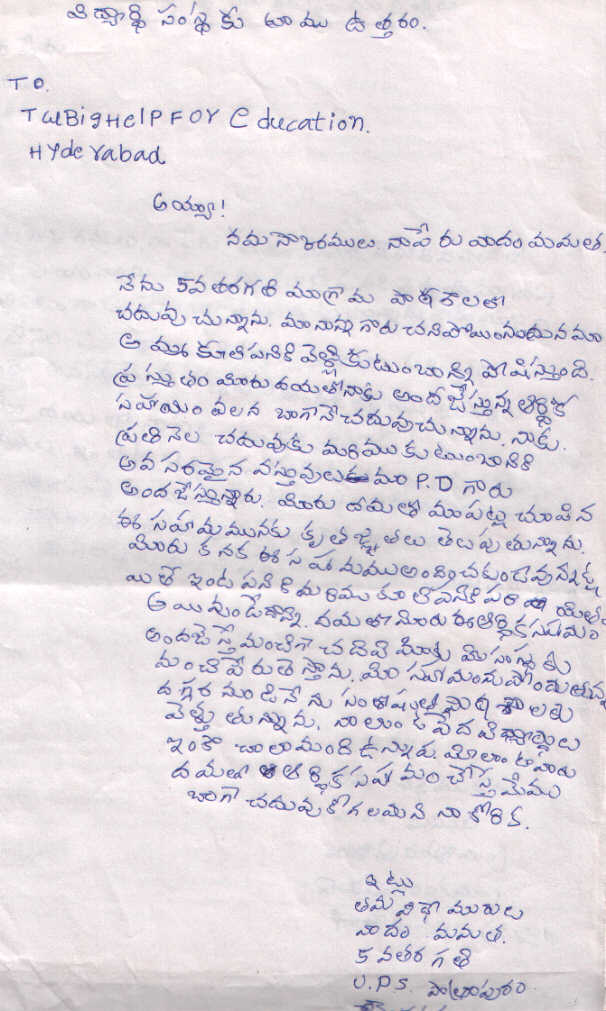 విద్యార్థి సంస్థకు రాయు ఉత్తరం.
TO.
TWBigHelP FOR Education.
Hyderabad
అయ్యా!
నమస్కారములు. నాపేరు నాదం మమత.
నేను 5వతరగతి మా గ్రామ పాఠశాలలో
చదువు చున్నాను. మా నాన్న గారు చనిపోయినందున మా
అమ్మ కూలి పనికి వెళ్లి కుటుంబాన్ని పోషిస్తుంది.
ప్రస్తుతం మీరు దయతో నాకు అందజేస్తున్న ఆర్థిక
సహాయం వలన బాగానే చదువుచున్నాను. నాకు.
ప్రతి నెల చదువుకు మరియు కుటుంబానికి
అవసరమైన వస్తువులు మా P.D గారు
అందజేస్తున్నారు. మీరు దయతో మాపట్ల చూపిన
ఈ సహాయమునకు కృతజ్ఞతలు తెలుపుతున్నాను.
మీరు కనక ఈ సహాయము అందించకుండా వున్నట్ల
యితే ఇంట పనికి మరియు కూలి పనికి
అయివుండేదాన్ని. దయతో మీరు ఈ ఆర్థిక సహాయం
అందజేస్తే మంచిగా చదివి మీకు మీ సంస్థకు
మంచి పేరు తెస్తాను. మీ సహాయం పొందుతున్న
దగ్గర నుండి నేను సంతోషంతో పాఠశాలకు
వెళ్తుతున్నాను. నాలాంటి పేద విద్యార్థులు
ఇంకా చాలామంది ఉన్నారు. మీలాంటి వారు
దయతో ఆర్థిక సహాయం చేస్తే మేము
బాగా చదువుకోగలమని నా కోరిక.
ఇట్లు
తమ విధేయురులు
నాదం మమత.
5 వతరగతి
U.P.S.